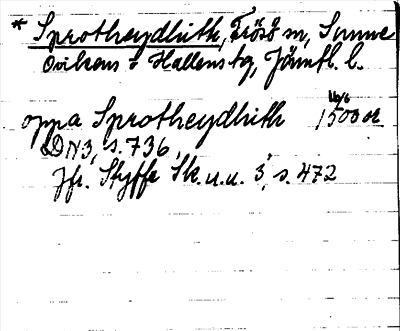 * Sprotheydhuth, Frösö sn, Sunne
Ovikens o Hallens tg, Jämtl. l.
16/6
oppa Sprotheydhuth 1500 or
DN3, s. 736,
Jfr. Styffe Sk. u. u. 3, s. 472